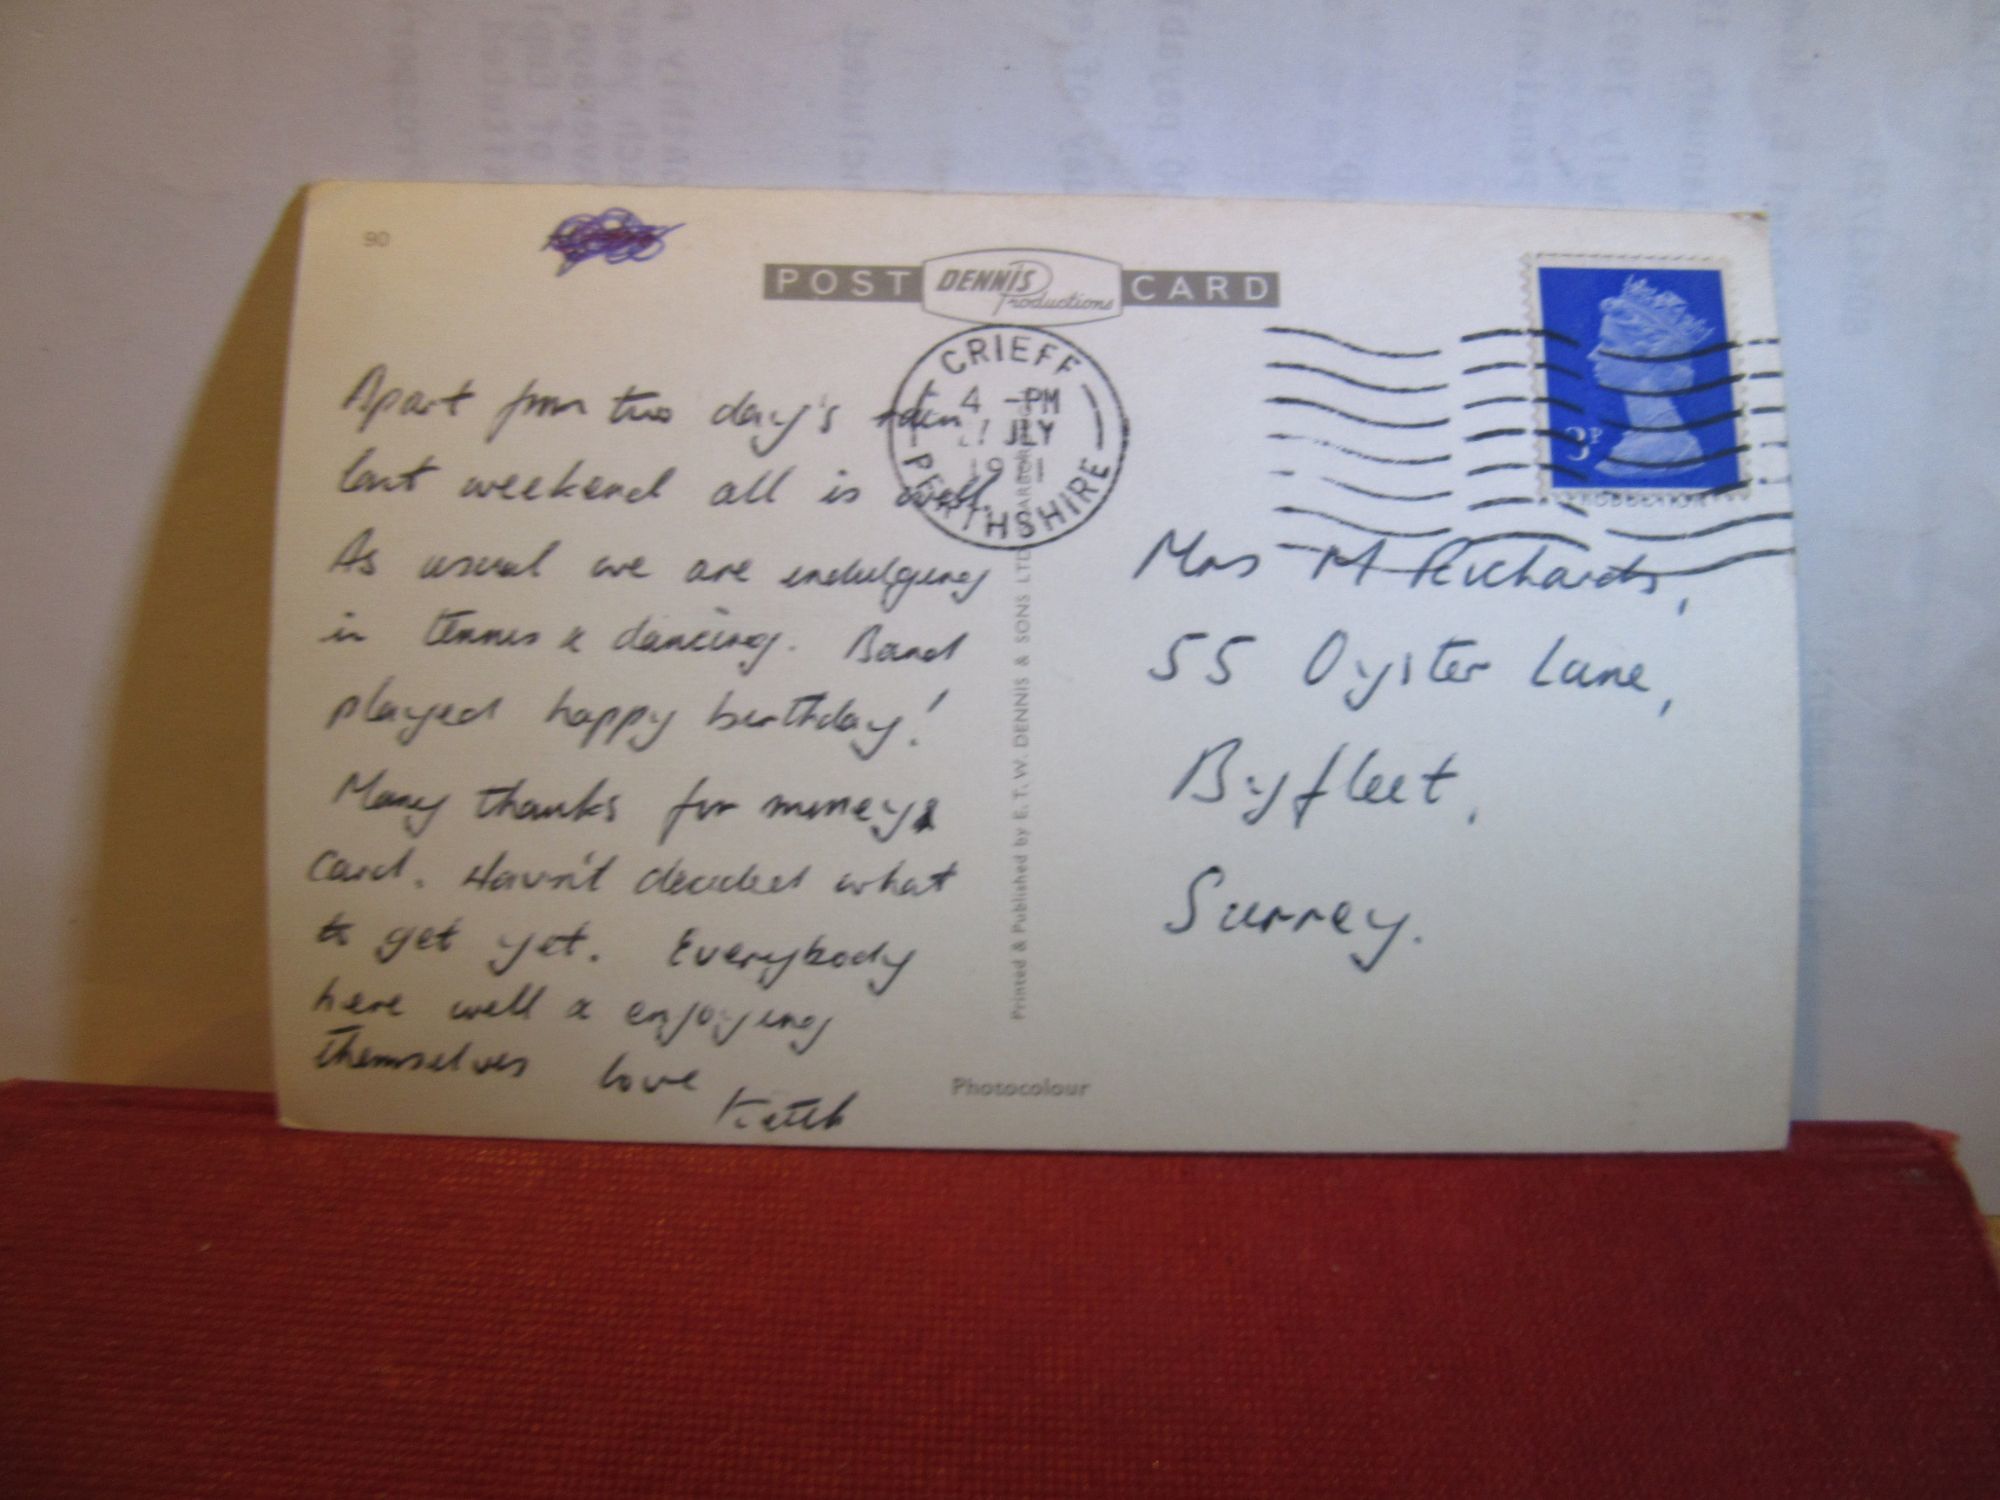 90
POST DENNIS Productions CARD
CRIEFF
4 -PM
JLY
PERTHSHIRE
3P
Apart from two day's rain
last weekend all is well.
As usual we are indulging
in tennis & dancing. Band
played happy birthday!
Many thanks for money &
card. Havn't decided what
to get yet. Everybody
here well & enjoying
themselves love
Keith
Printed & Published by E. T. W. DENNIS & SONS LTD
Mrs M Richards,
55 Oyster Lane,
Byfleet,
Surrey.
Photocolour